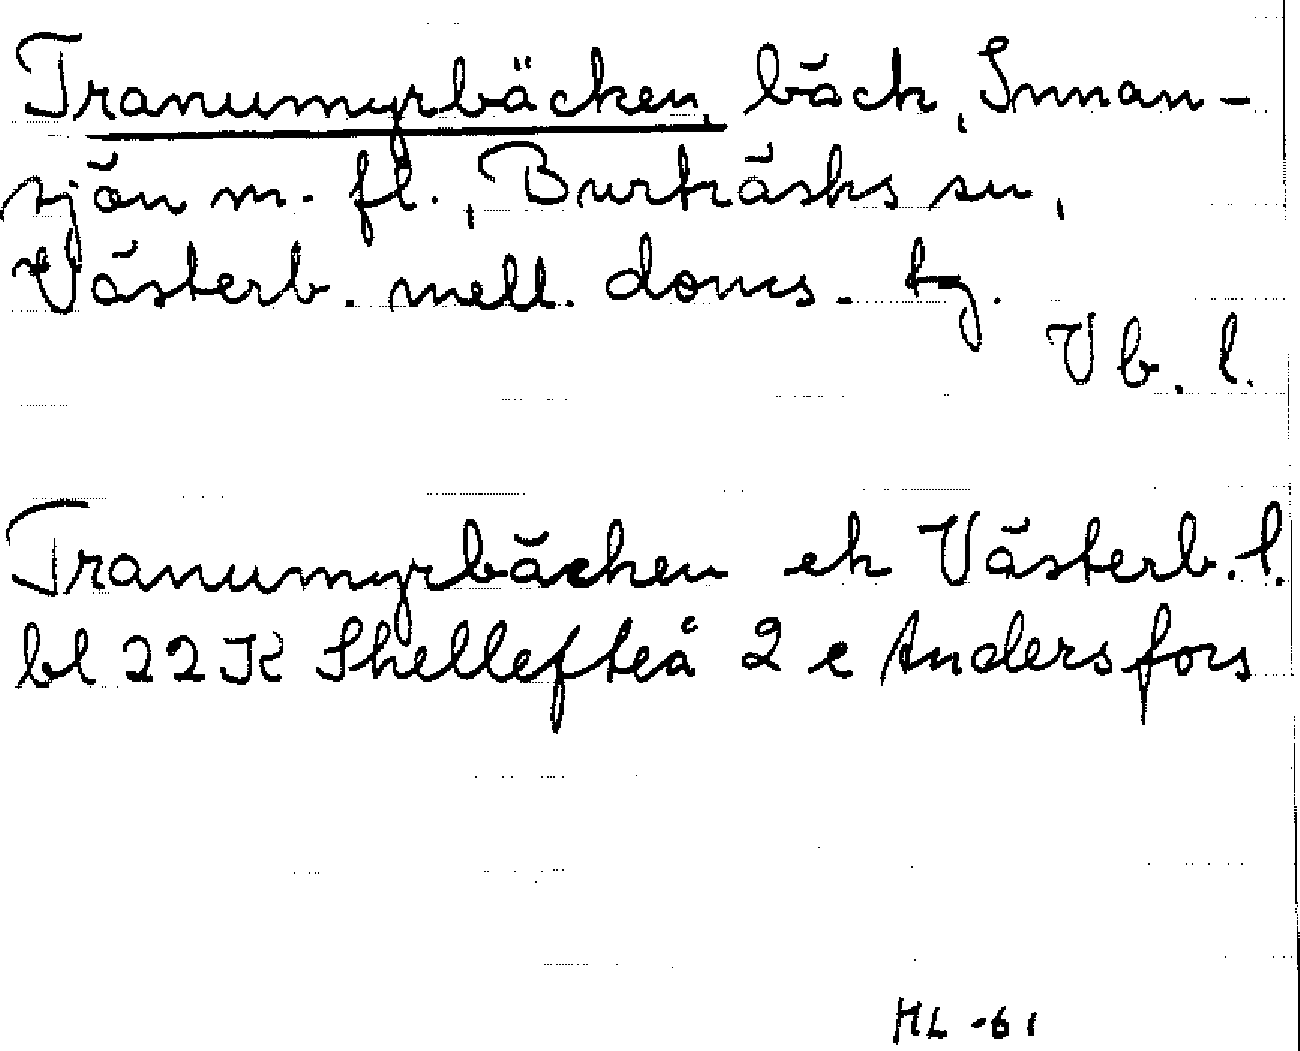 Tranumyrbäcken, bäck, Innan-
sjön m. fl., Burträsks sn,
Västerb. mell. doms. tg.
Vb. l.
Tranumyrbäcken ek Västerb. l.
bl 22K Skellefteå 2 e Andersfors
HL -61